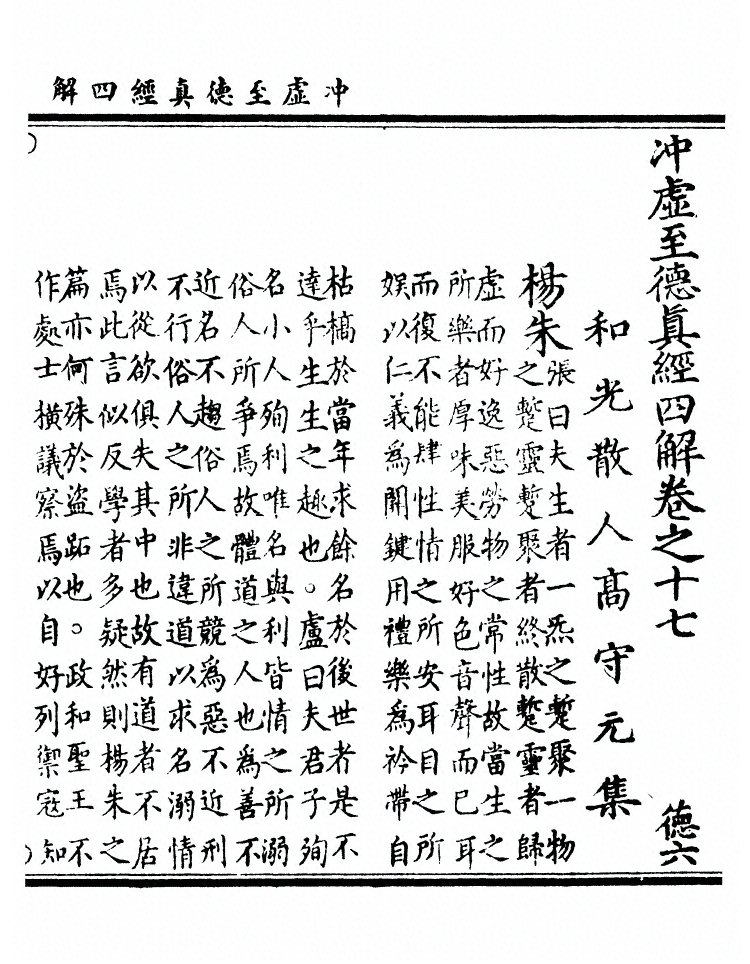 冲虛至德真經四解
冲虛至德真經四解卷之十七 德六
和光散人高守元集
楊朱
張曰夫生者一炁之蹔聚一物
之蹔靈蹔聚者終散蹔靈者歸
虛而好逸惡勞物之常性故當生之
所樂者厚味美服好色音聲而已耳
而復不能肆性情之所安耳目之所
娛以仁義為開鍵用禮樂為衿帶自
枯槁於當年求餘名於後世者是不
達乎生生之趣也。盧曰夫君子殉
名小人殉利唯名與利皆情之所溺
俗人所爭焉故體道之人也為善不
近名不趨俗人之所競為惡不近刑
不行俗人之所非違道以求名溺情
以從欲俱失其中也故有道者不居
焉此言似反學者多疑然則楊朱之
篇亦何殊於盜跖也。政和聖王不
作處士橫議察焉以自好列禦寇知